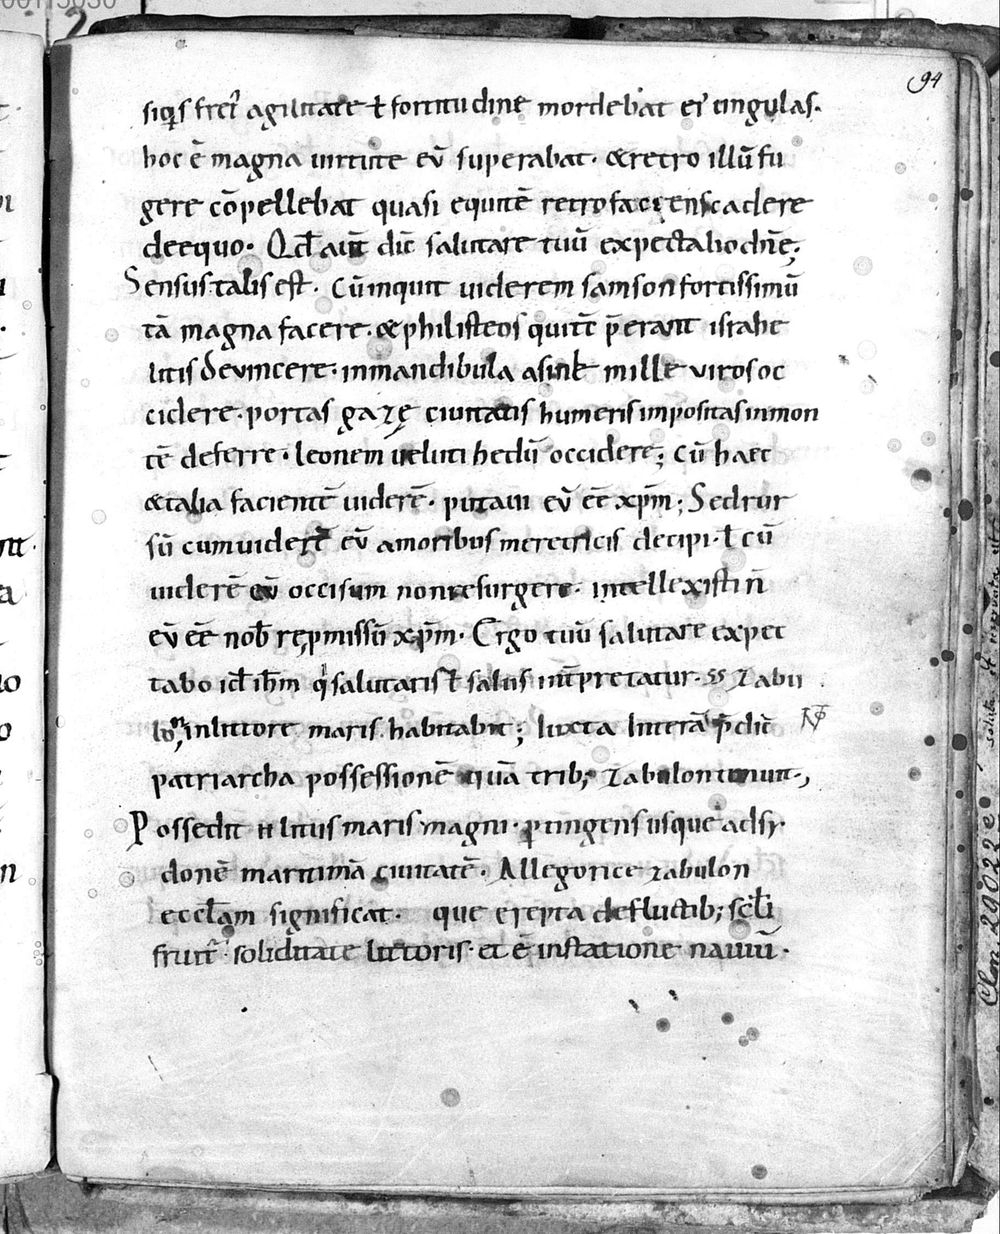 94
siq͛s fret͛ agilitate ł fortitudine mordebat ei͛ ungulas.
hoc ē magna uirtute eū superabat. & retro illū fu
gere cōpellebat quasi equitē retro faciens cadere
de equo. Qd̄ aut̄ dic̄ salutare tuū expectabo dn̄e;
Sensus talis est. Cū inquit uiderem samson fortissimū
tā magna facere. & philisteos quite p̄erant israhe
litis deuincere. in mandibula asinę mille viros oc
cidere. portas gazę ciuitatis humeris impositas in mon
tē deferre. leonem ueluti hedū occidere; cū haec
& talia facientē uiderē. putaui eū eē xp̄m; Sed rur
sū cum uiderē eū a moribus meretricis decipi. ł cū
uiderē eū occisum non resurgere. intellexisti n̄
eū eē nob̄ rep̄missū xp̄m. Ergo tuū salutare expec
tabo id̄ ih̄m q̄ salutaris ł salus int̄pretatur. Zabu
lon in littore maris habitabit; Iuxta litterā p̄dic̄
patriarcha possessionē quā trib; Zabulon tenuit.,
Possedit n̄ litus maris magni. p̄tingens usque ad sy.
donē maritimā ciuitatē. Allegorice zabulon
eccl̄am significat. que erepta de fluctib; scl̄i
fruit̄ soliditate littoris. et ē in statione nauiū.
Clm 29022e